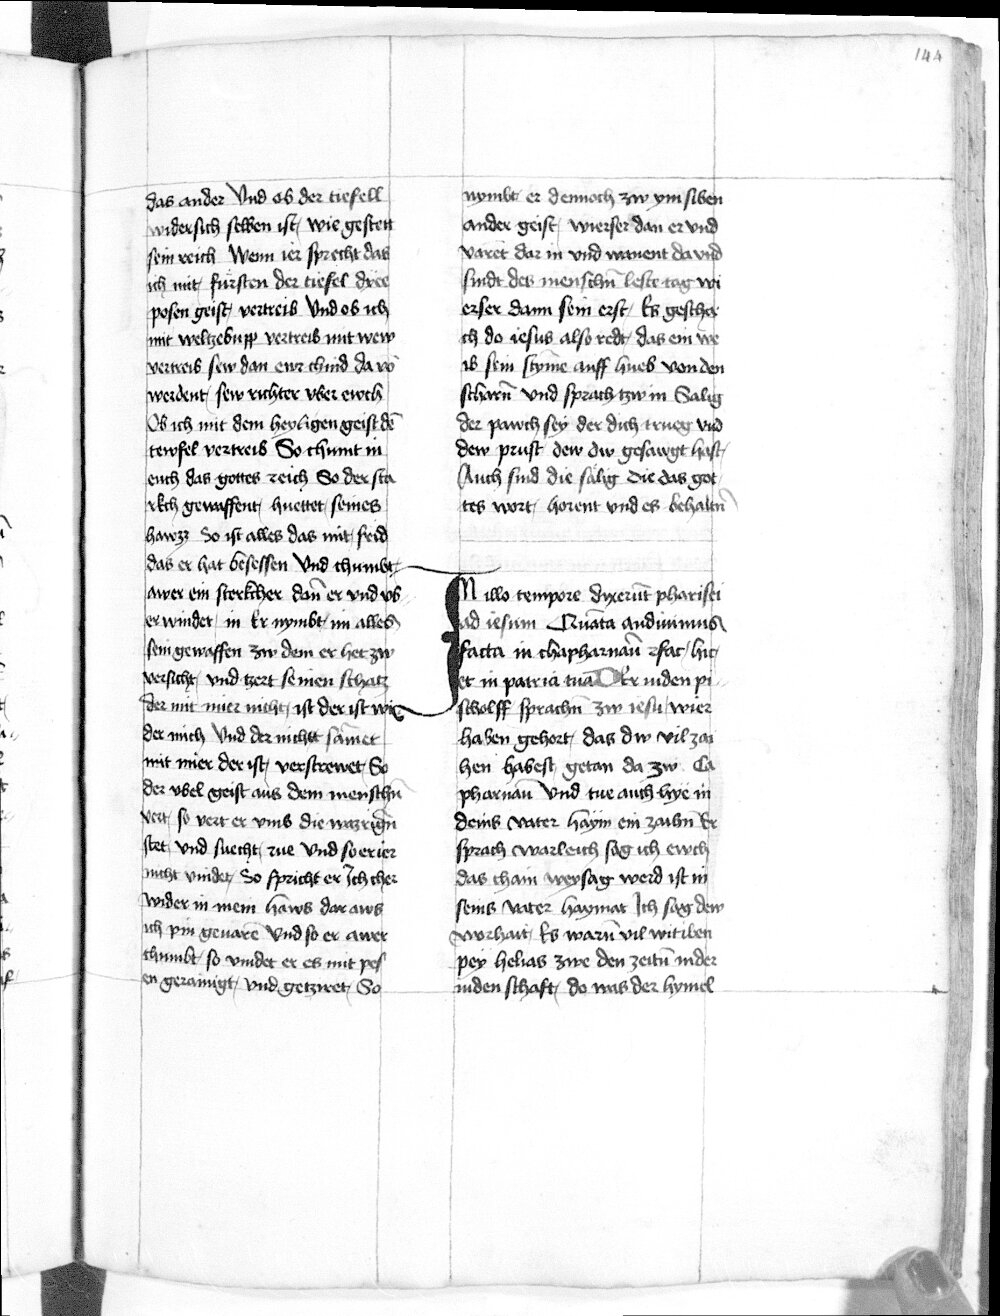 144
das ander Vnd ob der tiefell
widersich selben ist wie gestett
sein reich Wenn ier sprecht das
ich mit fürsten der tiefel dree
posen geist vertreib Vnd ob ich
mit weltzebupp vertreib mit wew
vertreib sew dan ewr chind da vō
werdent sew richter vber ewch
Ob ich mit dem heyligen geist dē
tewfel vertreib So chumt in
euch das gottes reich So der sta
rkch gewaffent huettet seines
hawzz So ist alles das mit frid
das er hat besessen Vnd chumbt
awer ein sterkcher dan̄ er vnd vb
er windet in Er nymbt im alles
sein gewaffen zw dem er het zw
versicht vnd tzert seinen schatz
der mit mier nicht ist der ist wi
der mich Vnd der nicht sāmet
mit mier der ist verstrewet So
der vbel geist aus dem menschn̄
vert so vert er vmb die wazrign̄
stet vnd suecht rue Vnd so er ier
nicht vindet So spricht er Ich cher
wider in mein haws dar aws
ich pin geuare Vnd so er awer
chumbt so vindet er es mit pes
en geraīnigt vnd getziret So
nymbt er dennoch zw ym siben
ander geist wierser dan er vnd
varet dar in vnd wanent da vnd
sindt des menschn̄ leste tag wi
erser dann sein erst Es geschæ
ch do iesus also redt das ein we
ib sein stȳme auff hueb von den
scharn̄ vnd sprach tzw in Salig
der pawch sey der dich trueg vnd
dew prust dew dw gesawgt hast
Auch sind die sälig Die das got
tes wort horent vnd es behaltn̄
IN illo tempore dixerūt pharisei
ad iesum Quāta audiuimus
facta in chapharnaū fac hic
et in patria tua Der iuden pi
scholff sprachn̄ zw iesu wier
haben gehort das dw vil zai
hen habest getan da zw Ca
pharnaū Vnd tue auch hye in
deins vater haȳm ein zaihn̄ Er
sprach warleich sag ich ewch
das chain weysag werd ist in
seins vater haymat Ich sag dew
worhait Es warn̄ vil witiben
pey helias zwe den zeitn̄ inder
iuden schaft do was der hymel